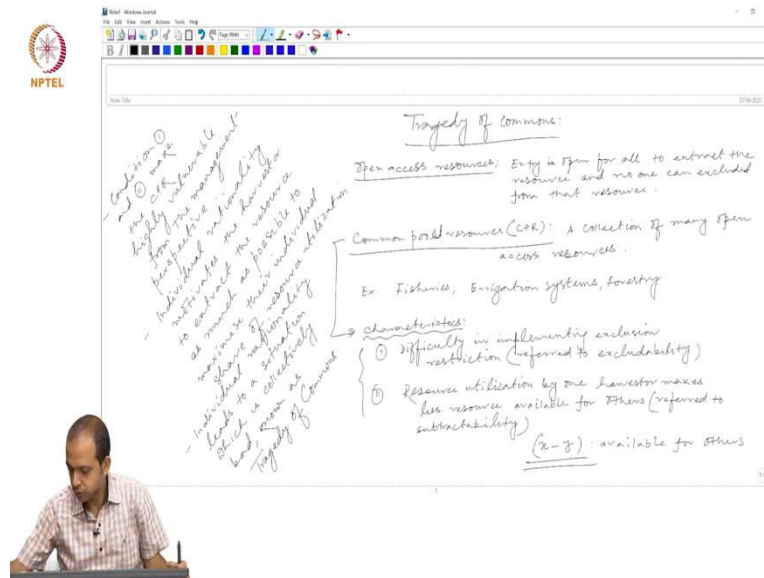 Note1 - Windows Journal
File Edit View Insert Actions Tools Help
Page Width
B I
NPTEL
Note Title
07-04-2021
Tragedy of Commons:
Open access resources: Entry is open for all to extract the
resource and no one can excluded
from that resource.
Common poold resources (CPR): A collection of many open
access resources.
Ex. Fisheries, Errigation systems, forestry
characteristics:
(I) Difficulty in implementing exclusion
restriction (referred to excludability)
(II) Resource utilization by one harvestor makes
less resource available for others (referred to
subtractability)
(x-y) : available for others
- Condition (I)
and (II) make
the CPR
highly vulnerable
from the management
perspective
- Individual rationality
motivates the harvestor
to extract the resource
as much as possible to
maximise their individual
share of resource utilization
- Individual rationality
leads to a situation
which is collectively
bad, known as
Tragedy of Commons